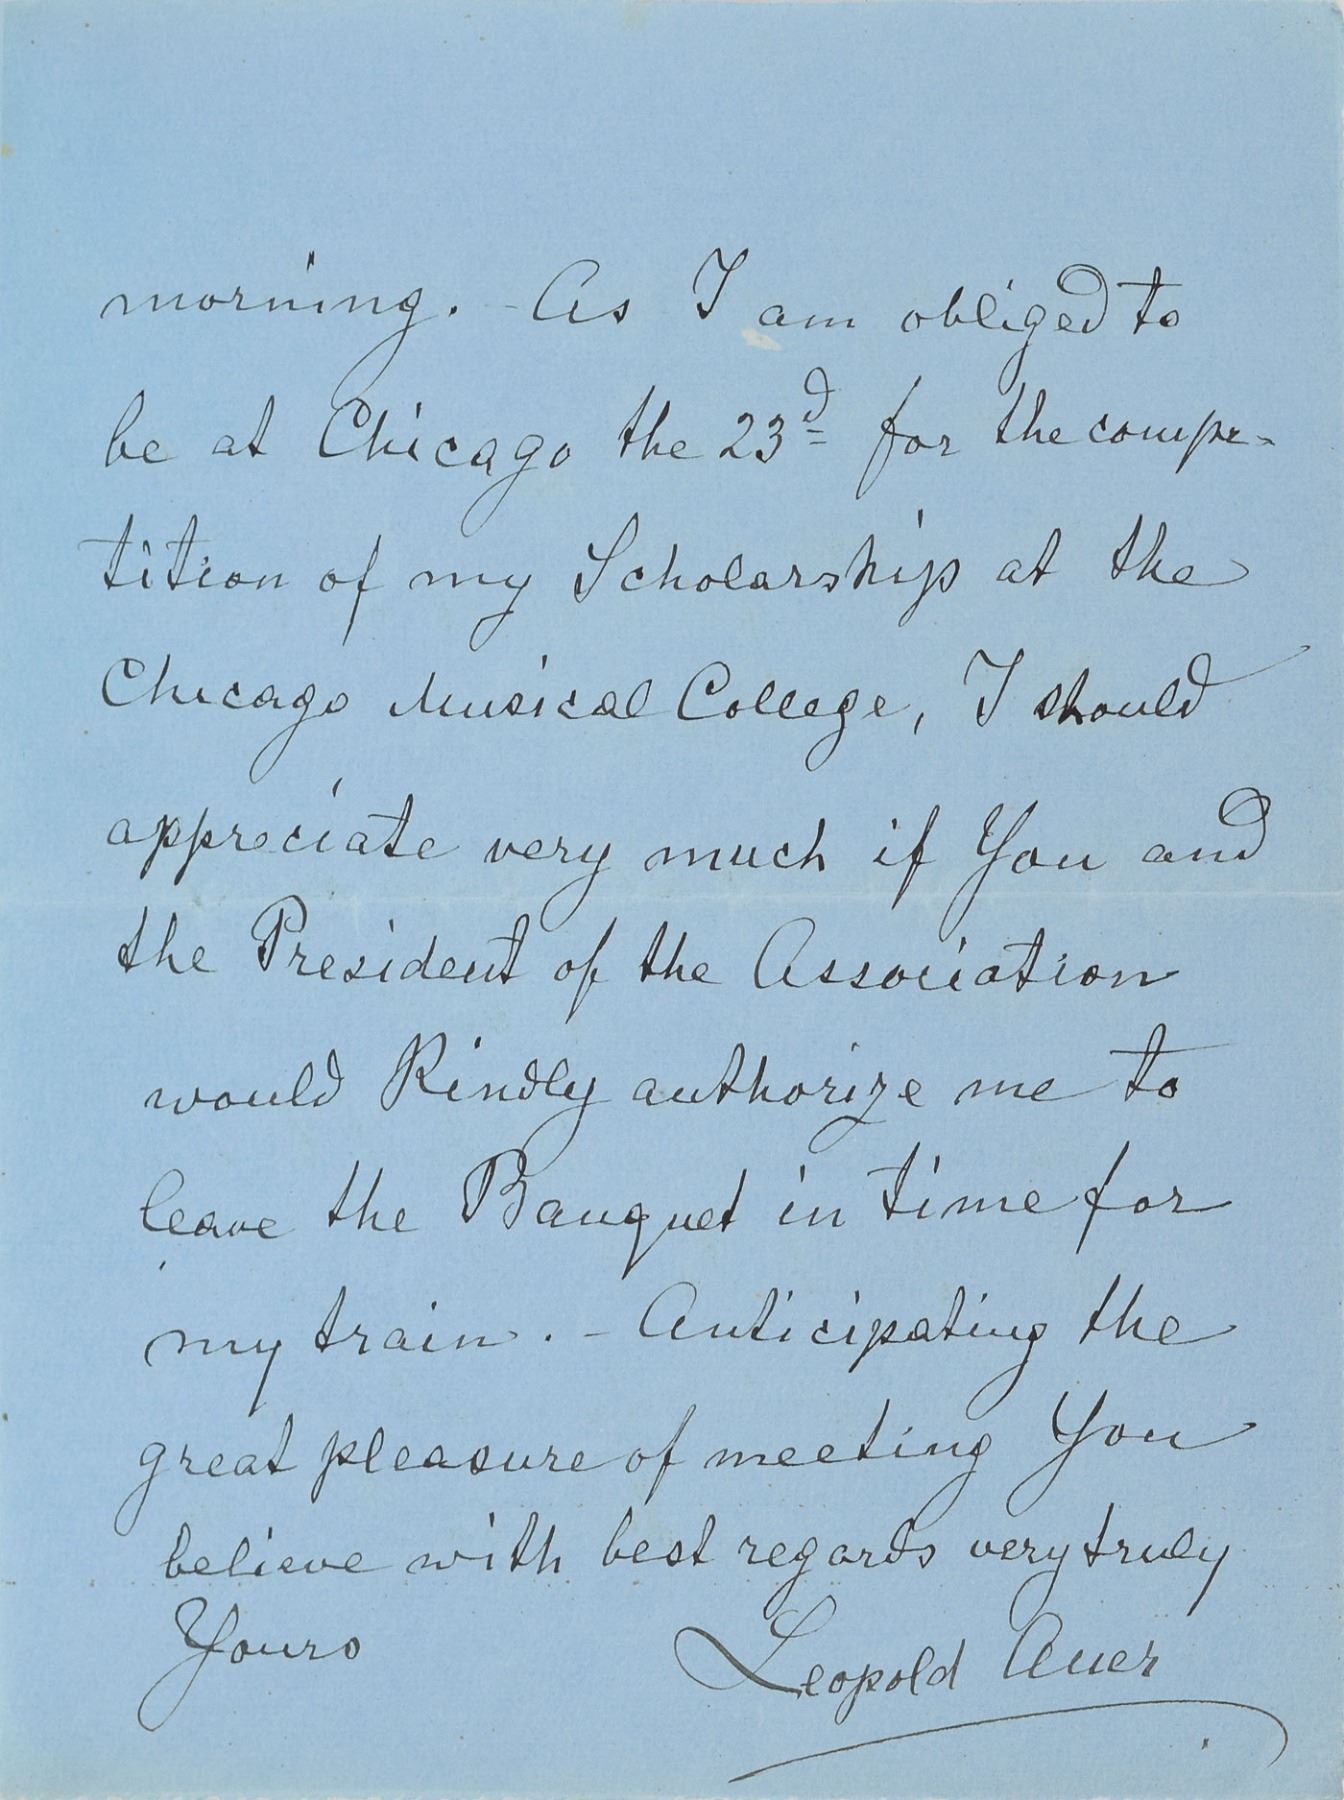 morning. - As I am obliged to
be at Chicago the 23d for the compe-
tition of my Scholarship at the
Chicago Musical College, I should
appreciate very much if You and
the President of the Association
would Kindly authorize me to
leave the Banquet in time for
my train. - Anticipating the
great pleasure of meeting You
believe with best regards very truly
Yours Leopold Auer